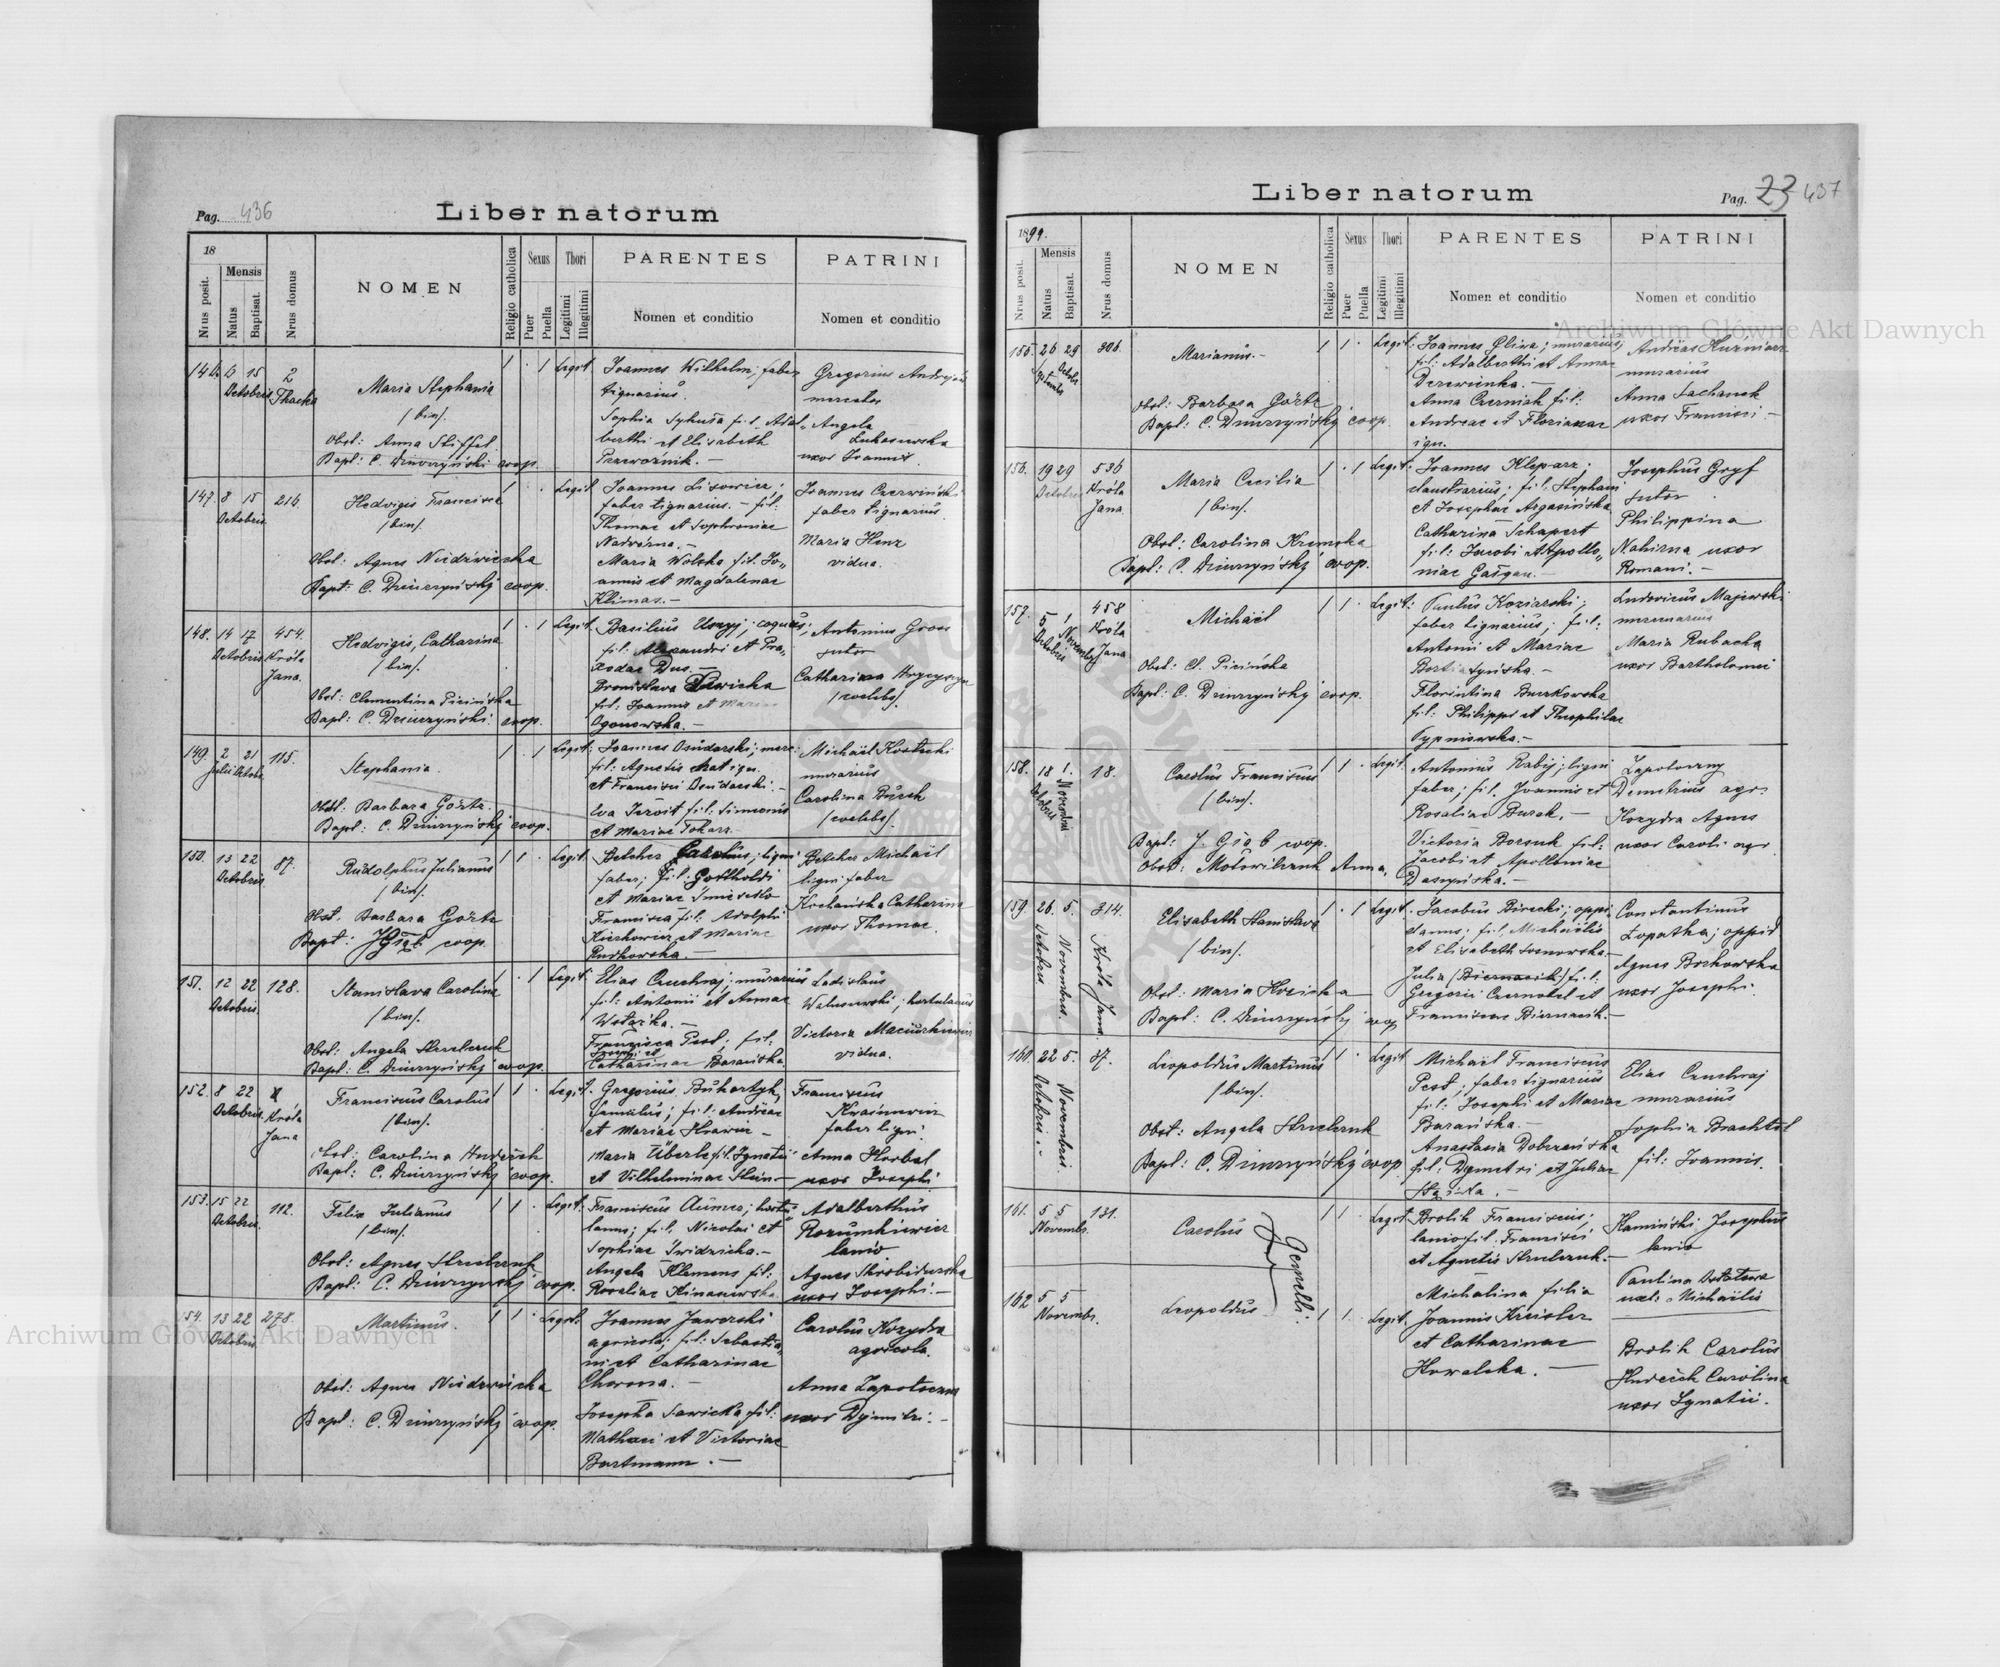 Pag. 436
Liber natorum
18
Nrus posit.
Mensis
Natus
Baptisat.
Nrus domus
NOMEN
Religio catholica
Sexus
Puer
Puella
Thori
Legitimi
Illegitimi
PARENTES
Nomen et conditio
PATRINI
Nomen et conditio
146. 6 15 2 1 . 1 Legit.
Octobris Thacka
Maria Stephania
/bin/.
Obst: Anna Stiffel
Bapt: C. Dziurzyński coop.
Joannes Wilhelm; faber
tignarius.
Sophia Sykuła fil. Adal-
berthi et Elisabeth
Przewoźnik. —
Gregorius
mercator
Angela
Łukaszewska
uxor Joannis.
147. 8 15 216. Legit.
Octobris
Hedvigis Francisca
/bin/.
Obst: Agnes Niedzwiecka
Bapt: C. Dziurzyński coop.
Joannes Lisowicz;
faber tignarius. — fil:
Thomae et Sophroniae
Nadwórna. —
Maria Wolska fil. Jo-
annis et Magdalenae
Klimas. —
Joannes Czerwiński
faber tignarius
Maria Henz
vidua.
148. 14 17 454. 1 . 1 Legit.
Octobris Króla
Jana.
Hedvigis, Catharina
/bin/.
Obst: Clementina Picińska
Bapt: C. Dziurzyński coop.
Basilius ; coquus;
fil. Alexandri et Pra-
xedae Dus. —
Bronislava Sawicka
fil: Joannis et Mariae
Ogonowska. —
Antonius Gross
sutor
Catharina
/coelebs/.
149. 2 21 115. 1 . 1 Legit:
Julii Octobr.
Stephania.
Obst: Barbara Görtz.
Bapt: C. Dziurzyński coop.
Joannes Osudarski; merc:
fil: Agnetis
et Francisci Osudarski. —
Eva fil. Simeonis
et Mariae Tokarz.
Michaël Kostecki
murarius
Carolina Bursch
/coelebs/.
150. 13 22 87. 1 1 . Legit.
Octobris
Rudolphus Julianus
/bin/.
Obst. Barbara Görtz
Bapt: J Głąb coop.
Betcher Carolus; ligni
faber; fil: Gottholdi
et Mariae
Francisca fil: Adolphi
et Mariae
Rutkowska. —
Betcher Michaël
ligni faber
Kochańska Catharina
uxor Thomae.
151. 12 22 128. 1 . 1 Legit:
Octobris
Stanislava Carolina
/bin/.
Obst: Angela Strubczuk
Bapt: C. Dziurzyński coop.
Elias Czuchraj; murarius
fil: Antonii et Annae
Francisca Pest; fil:
Josephi et
Catharinae Barańska.
Ladislaus
hortulanus
Victoria Maciurkiewicz
vidua.
152. 8 22 1 1 . Legit.
Octobris. Króla
Jana
Franciscus Carolus
/bin/.
Obst: Carolina Hudeich
Bapt: C. Dziurzyński coop.
Gregorius Buhartyk,
famulus; fil: Andreae
et Mariae Hrawicz —
Maria Überle fil. Ignatii
et Vilhelminae Stein —
Franciscus
faber ligni.
Anna Horbal
uxor Josephi.
153. 15 22 112. 1 1 . Legit.
Octobris.
Felix Julianus
/bin/.
Obst: Agnes Strubczuk
Bapt: C. Dziurzyński coop.
Franciscus Aumer; hortu-
lanus; fil. Nicolai et
Sophiae Świdzicka. —
Angela Klemens fil:
Rosaliae
Adalberthus
Rozumkiewicz
lanio
Agnes Skrobidurska
uxor Josephi. —
154. 13 22 278. 1 1 . Legit:
Octobris
Martinus.
Obst: Agnes Niedzwiecka
Bapt: C. Dziurzyński coop.
Joannes Jaworski
agricola; fil: Sebastia-
ni et Catharinae
Chorosna. —
Josepha Sawicka fil:
Mathaei et Victoriae
Bartmann. —
Carolus Kozydra
agricola.
Anna Zapotoczna
uxor Dymitri. —
Liber natorum
Pag. 23 437
1899.
Nrus posit.
Mensis
Natus
Baptisat.
Nrus domus
NOMEN
Religio catholica
Sexus
Puer
Puella
Thori
Legitimi
Illegitimi
PARENTES
Nomen et conditio
PATRINI
Nomen et conditio
155. 26 29 306. 1 1 . Legit:
Septembr. Octobr.
Marianus. —
Obst: Barbara Görtz
Bapt: C. Dziurzyński coop.
Joannes Oliwa; murarius;
fil: Adalberthi et Annae
Drzewienka. —
Anna Czernik fil:
Andreae et Florianae
ign.
Andreas Kuźniarz
murarius
Anna Lachanek
uxor Francisci —
156. 19 29 536 1 . 1 Legit:
Octobris Króla
Jana.
Maria Cecilia
/bin/.
Obst: Carolina Kremska
Bapt: C. Dziurzyński coop.
Joannes Kleparz;
claustrarius; fil: Stephani
et Josephae Argasińska.
Catharina Schapert
fil: Jacobi et Apollo-
niae
Josephus Gryf
sutor
Philippina
Nahirna uxor
Romani. —
157. 5 1 458 1 1 . Legit:
Octobris Novembr. Króla
Jana
Michaël
Obst: Cl. Picińska
Bapt: C. Dziurzyński coop.
Paulus Koziarski;
faber tignarius; fil:
Antonii et Mariae
Florentina Burzkowska
fil: Philippi et Theophilae
Typniewska. —
Ludovicus Majewski
murarius
Maria Rubacka
uxor Bartholomei
158. 18 1. 18. 1 1 . Legit.
Octobris Novembris
Carolus Franciscus
/bin/.
Bapt: J. Głąb coop.
Obst: Motowilczuk Anna.
Antonius Rabij; ligni
faber; fil. Joannis et
Rosaliae Bursk. —
Victoria Borsuk fil:
Jacobi et Apolloniae
Daszyńska. —
Zapotoczny
Demetrius agr.
Kozydra Agnes
uxor Caroli agr.
159. 26. 5. 314. 1 . 1 Legit.
Octobris Novembris. Króla Jana
Elisabeth Stanislava
/bin/.
Obst: Maria Kosicka
Bapt: C. Dziurzyński coop
Jacobus Birecki; oppi-
danus; fil. Michaëlis
et Elisabeth Sosnowska. —
Julia (Biernacik) fil.
Gregorii Czernobel et
Franciscae Biernacik. —
Constantinus
Łopatka; oppid
Agnes Borkowska
uxor Josephi.
160 22 5. 37. 1 1 . Legit.
Octobris. Novembris
Leopoldus Martinus
/bin/.
Obst: Angela Strubczuk
Bapt: C. Dziurzyński coop
Michaël Franciscus
Pest; faber tignarius
fil: Josephi et Mariae
Barańska. —
Anastasia Doberańska
fil: Demetri et Juliae
Elias Czuchraj
murarius
Sophia Brachtel
fil: Joannis.
161. 5 5 131. 1 1 . Legit.
Novembr.
Carolus
Gemelli.
Brolik Franciscus;
lanio fil. Francisci
et Agnetis Strubczuk. —
Michalina filia
Joannis Kreisler
et Catharinae
Kowalska. —
Kamiński Josephus
lanio
Paulina
uxor Michaëlis
162 5 5 1 1 . Legit.
Novembr.
Leopoldus
Brolik Carolus
Hudeich Carolina
uxor Ignatii.
Archiwum Główne Akt Dawnych
Archiwum Główne Akt Dawnych